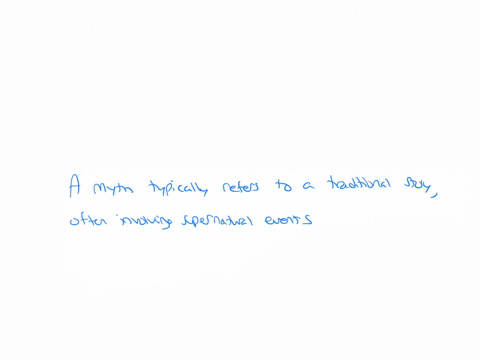 A myth typically refers to a traditional story,
often involving supernatural events